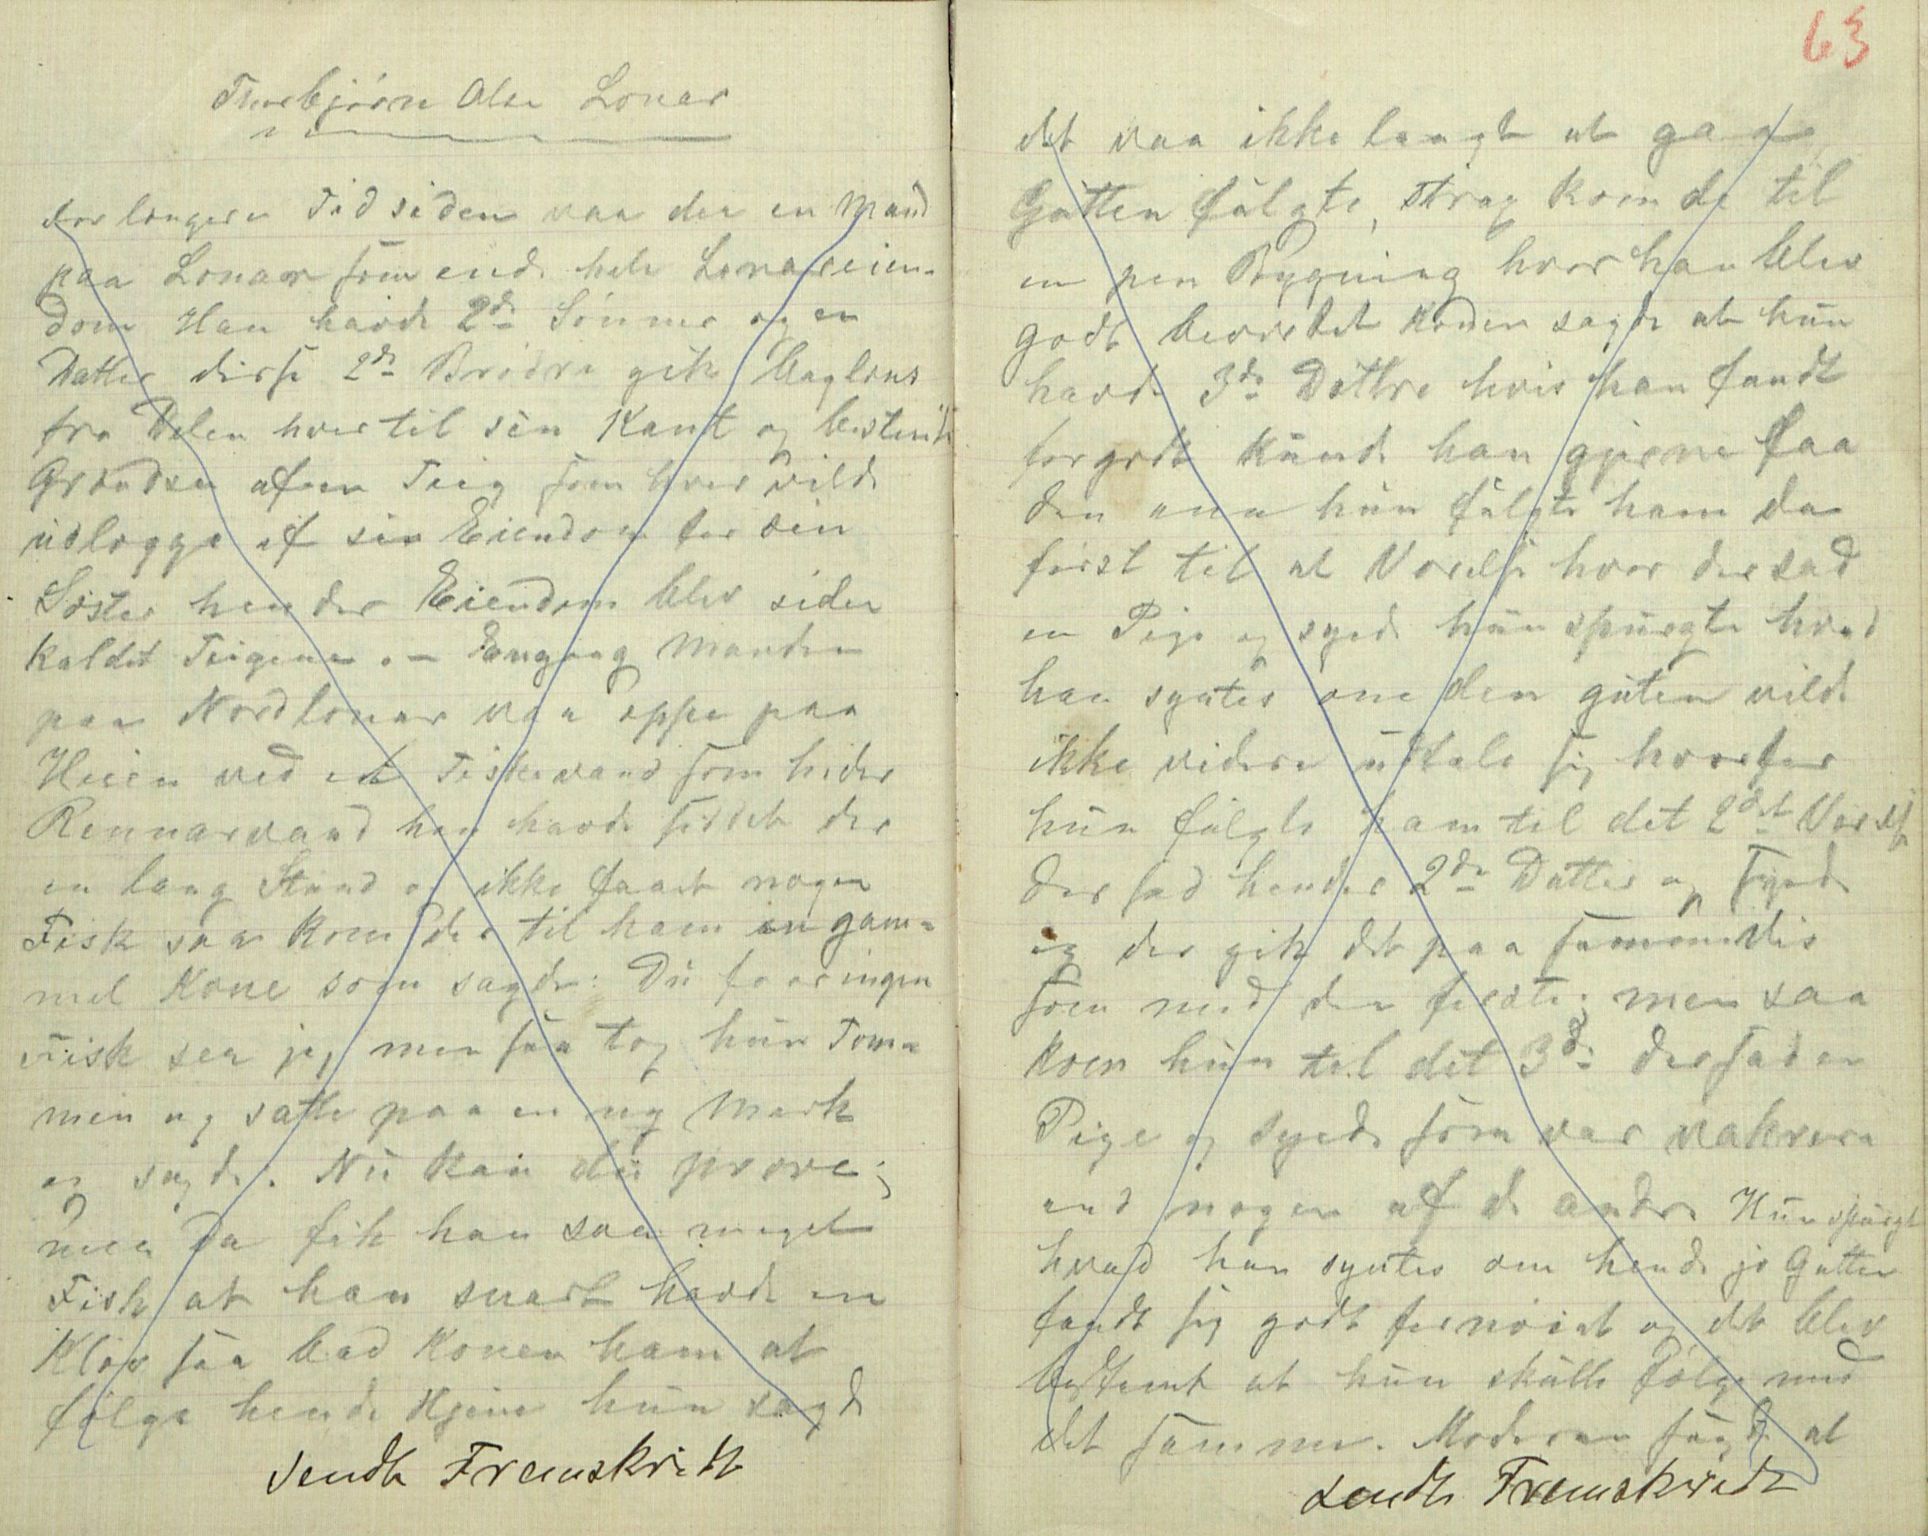 Thorbjörn Olsa Lonar
For longere Tid siden vaa der en Mand
paa Lonar som eide hele Lonareien-
dom Han havde 2de Sönner og en
Datter disse 2de Brödre gik baglens
fra Delen hver til sin Kant og bestemte
Grændsen af en Teig som hver vilde
udlægge af sin Eiendom for sin
Söster hendes Eiendom blev siden
kaldet Teigene. – Engang Manden
paa Nordlonar vaa oppe paa
Heien ved et Fiskevand som heder
Rennarvand han havde siddet der
en lang Stund og ikke faaet nogen
Fisk saa kom der til ham en gam-
mel Kone som sagde: Du faar ingen
Fisk ser jeg men saa tog hun Töm-
men og satte paa en ny Mark
og sagde. Nu kan du prøve;
men Da fik han saa meget
Fisk at han snart havde en
Kløv saa bad Konen ham at
fölge hende Hjem hun sagde
Sendt Fremskridt
63
det vaa ikke langt at gaa
Gutten fulgte, strax kom de til
en pen Bygning hvor han blev
godt bevertet Konen sagde at hun
havde 3de Döttre hvis han fandt
forgodt kunde han gjerne faa
den ene hun fulgte ham da
först til et Værelse hvor der sad
en Pige og syede hun spurgte hvad
han syntes om den guten vilde
ikke videre uttale sig hvorfor
hun fulgte ham til det 2det Værelse
der sad hendes 2den Datter og syede
og der gik det paa sammevis
som med den förste; men saa
kom hun til det 3de der sad en
Pige og syede som var vakrere
end nogen af de andre Hun spurgte
hvad han syntes om hende jo Gutten
fandt sig godt fornöiet og det blev
bestemt at hun skulle fölge med
det samme. Moderen sagde at
Sendt Fremskridt